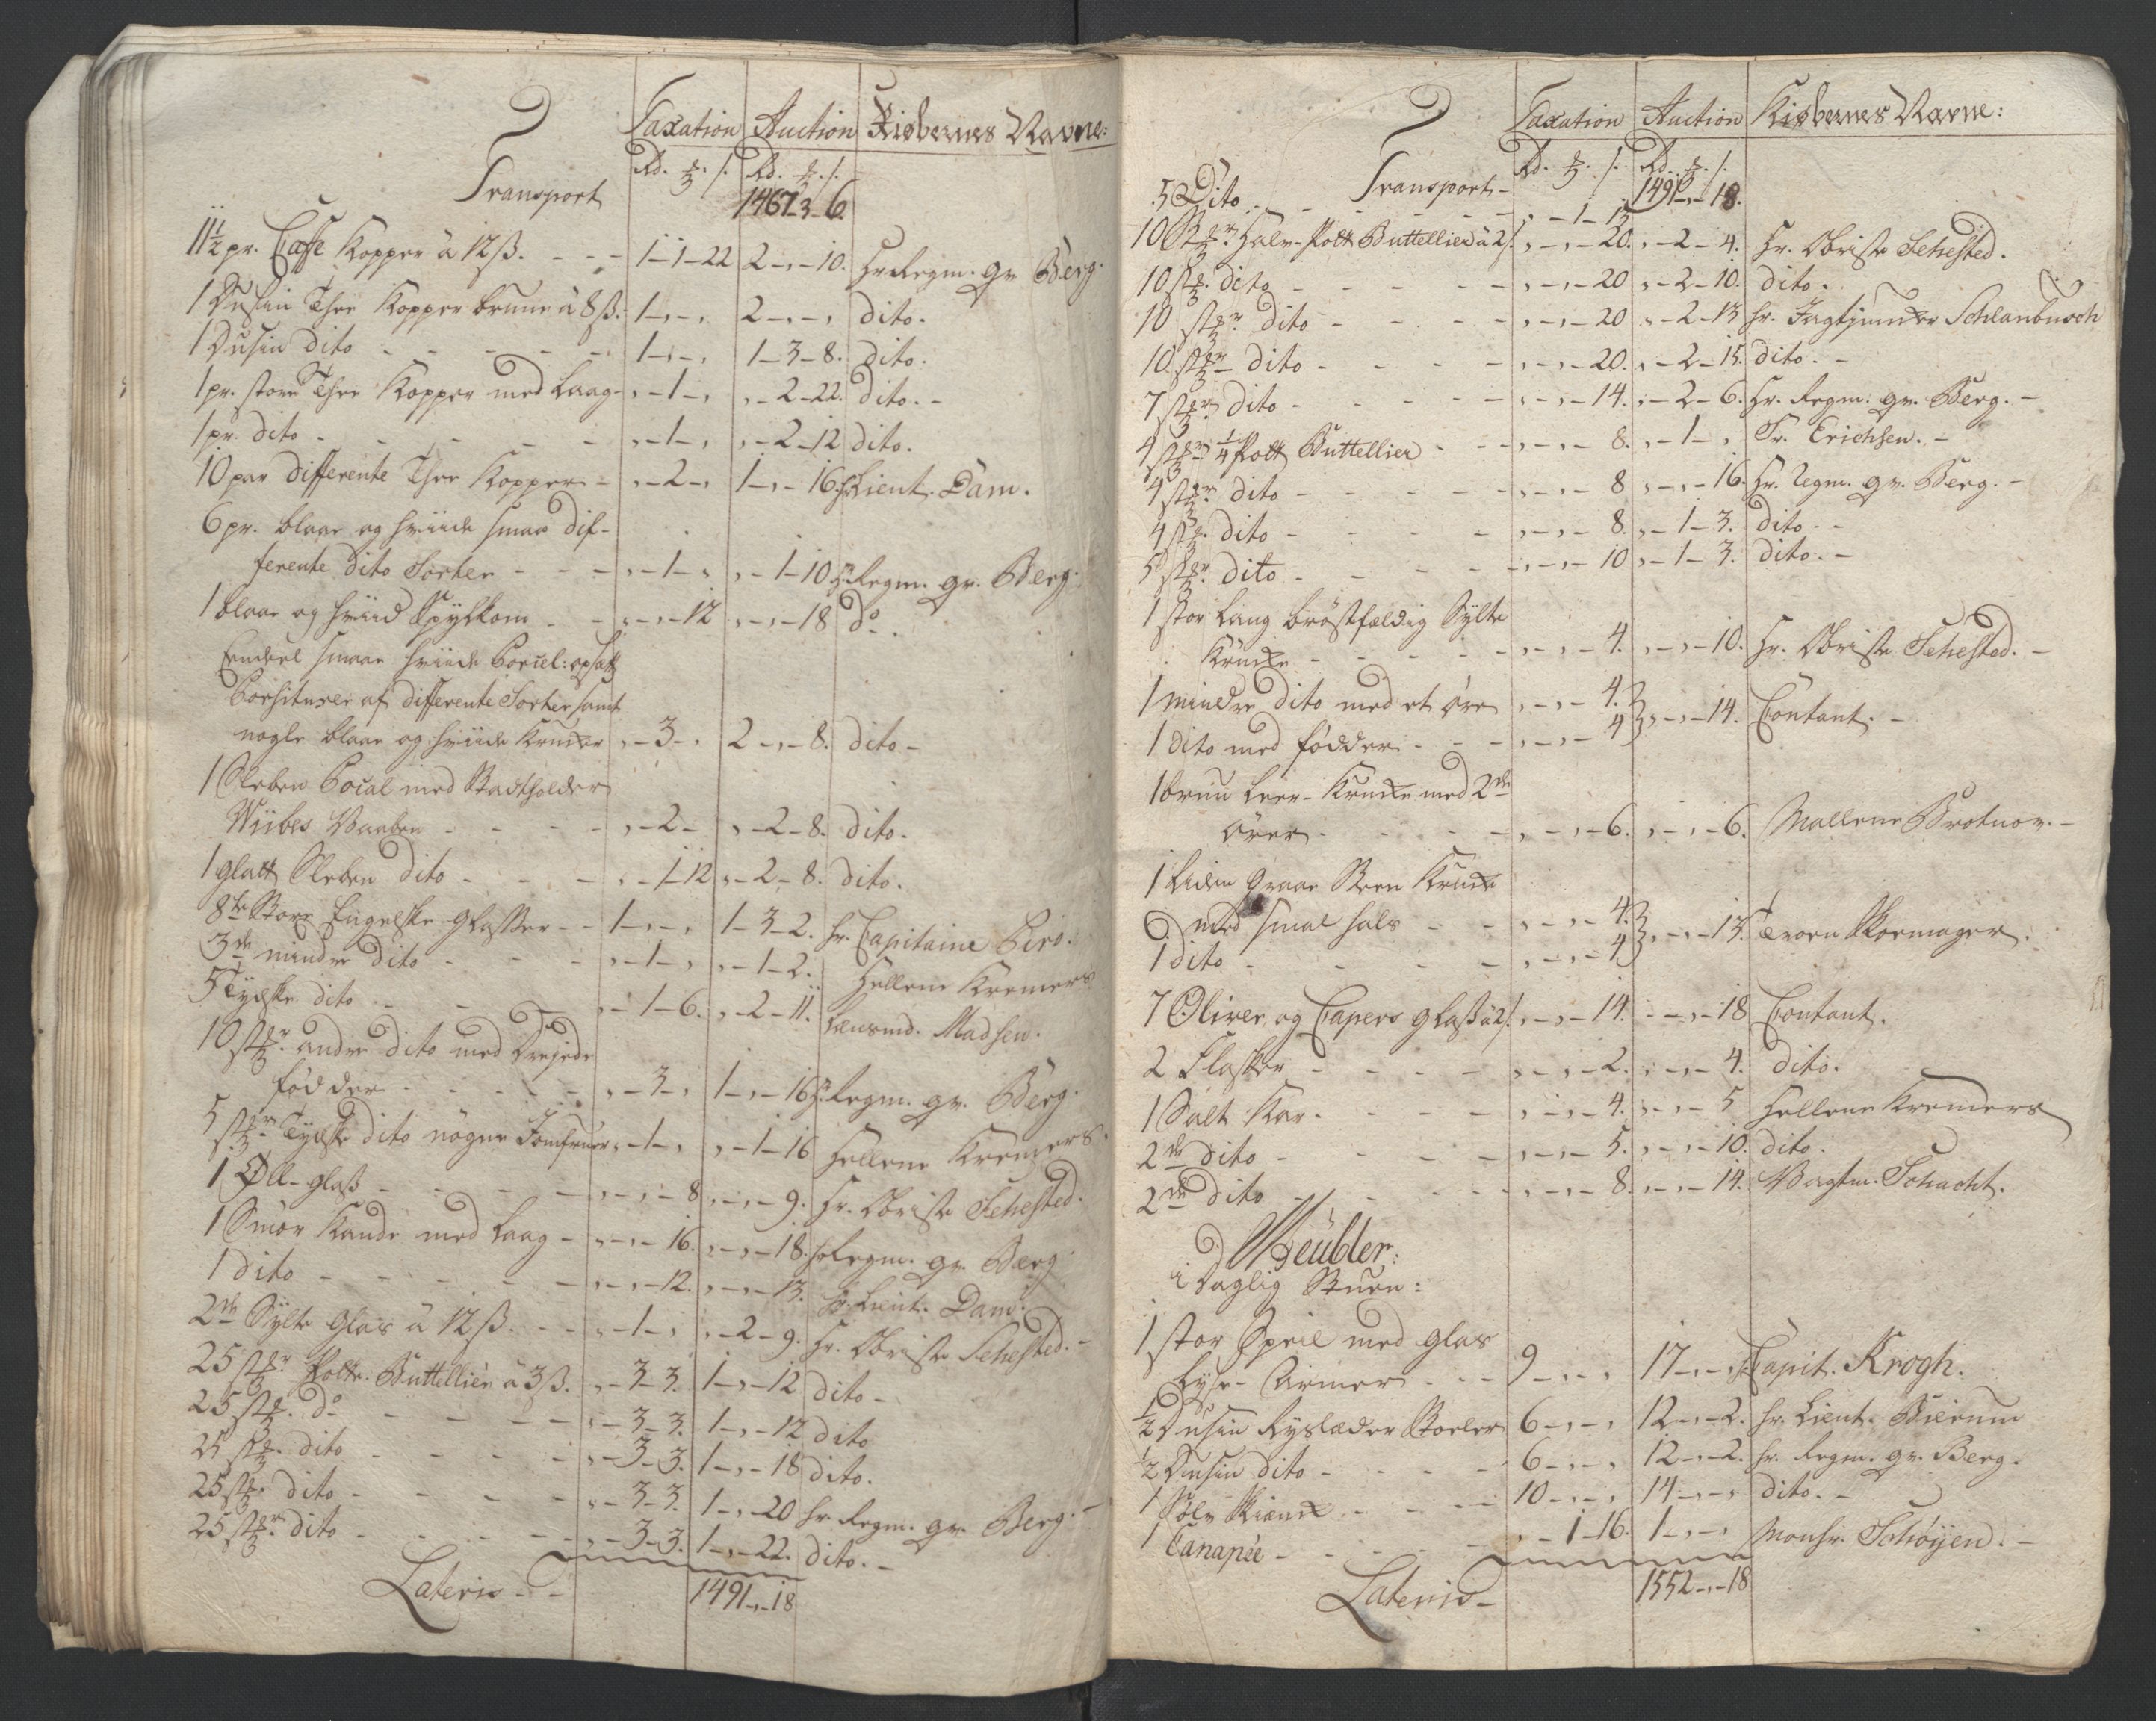 Taxation Auction Kiöbernes Navne:
Rd. ʒ. s. Rd. ʒ. s.
Transport 1467-3-6.
11½ pr. Caffe Kopper à 12ß. - - - 1-1-22 2-,-10. Hr Regm. qv. Berg.
1 Dusin Thee Kopper brune à 8ß. 1-,-, 2-,-, dito.
1 Dusin dito - - - 1-,-, 1-3-8. dito.
1 pr. store Thee Kopper med Laag ,-1-, ,-2-22. dito. -
1 pr. dito - - - ,-1-, ,-2-12 dito.
10 par differente Thee Kopper - ,-2-, 1-,-16. Hr Lieut. Dam.
6 pr. blaae og hviide smaa dif-
ferente dito Sorter - - - ,-1-, ,-1-10 Hr Regm. qv. Berg.
1 blaae og hviid Spylkom - - ,-,-12 ,-,-18 do.
Eendeel smaae hviide Porcel: opsatz
Porsiturer af differente Sorter samt
nogle blaae og hviide Krukker ,-3-, 2-,-8. dito -
1 Sleben Pocal med Stadtholder
Wiibes Vaaben - - - ,-2- ,-2-8. dito.
1 glatt Sleben dito - - - ,-1-12 ,-2-8. dito.
8te Store Engelske glasser - - 1-,-, 1-3-2. hr. Capitaine Biro.
3de mindre dito - - - ,-1-, ,-1-2. Hellene Kremers
5 Tydske dito - - - ,-1-6. ,-2-11. Lensmd. Madsen.
10 stkr. andre dito med Drejede
födder - - - ,-3-, 1-,-16 Hr Regm. qv. Berg.
5 stkr. Tydske dito nögne Jomfruer ,-1-, ,-1-16 Hellene Kremers.
1 Øll-glaß - - - ,-,-8 ,-,-9. Hr. Obriste Sehested.
1 Smör Kande med Laag - ,-,-16. ,-,-18. Hr Regm. qv. Berg
1 dito - - - ,-,-12. ,-,-13. Hr. Lieut. Dam.
2de Sylte Glas à 12ß. - - ,-1-, ,-2-9. Hr. Obriste Sehested. -
25 stkr. Potte Buttellier à 3ß. ,-3-3. 1-,-12 dito -
25 stk. do - - - ,-3-3. 1-,-12 dito
25 stk. dito - - - ,-3-3. 1-,-18 dito.
25 stk. dito - - - ,-3-3. 1-,-20 hr. Regm. qv. Berg. -
25 stkr. dito - - - ,-3-3. 1-,-22. dito. -
Lateris - - 1491-,-18
Taxation Auction Kiöbernes Navne:
Rd. ʒ. s. Rd. ʒ. s.
Transport - 1491-,-18.
5 Dito - - - ,-1-15
10 Stkr. Halv-Pott Buttellier à 2s. ,-,-20. ,-2-4. Hr. Obriste Sehested.
10 stk. dito - - - ,-,-20 ,-2-10. dito.
10 stkr. dito - - - ,-,-20 ,-2-13 hr. Jagtjunker Schlanbusch
10 stkr. dito - - - ,-,-20. ,-2-15. dito. -
7 stkr. dito - - - ,-,-14. ,-2-6. Hr. Regm. qv. Berg. -
4 stkr. ¼ Pott Buttellier - - ,-,-8. ,-1-, Sr. Erichsen. -
4 stkr. dito - - - ,-,-8 ,-,-16. Hr. Regm. qv. Berg. -
4 stk. dito - - - ,-,-8. ,-1-3. dito - -
5 stkr. dito - - - ,-,-10 ,-1-3. dito. -
1 stor lang bröstfældig Sylte
Krukke - - - ,-,-4. ,-,-10. Hr. Obriste Sehested. -
1 mindre dito med et öre ,-,-4.
1 dito med födder - - - ,-,-4 ,-,-14. Contant. -
1 bruun Leer-Krukke med 2de
örer - - - ,-,-6. ,-,-6. Mallene
1 Liden graae Steen Krukke
med smal hals - - ,-,-4.
1 dito - - - ,-,-4 ,-,-13. Skomager.
7 Oliven og Capers glaß à 2s. ,-,-14. ,-,-18 Contant.
2 Flasker - - - ,-,-2. ,-,-4. dito.
1 Salt Kar - - - ,-,-4. ,-,-5 Hellene Kremers
2de dito - - - ,-,-5. ,-,-10. dito.
2de dito - - - ,-,-8. ,-,-14. Vagtm. Schacht.
Meübler:
i Daglig Stuen:
1 stor Speil med glas
Lyse-Armer - - - 9-,-, 17-,-, Capit. Krogh.
½ Dusin Ryslæder Stoeler 6-,-, 12-,-2. hr. Lieut. Bierum
½ Dusin dito - - - 6-,-, 12-,-2. hr. Regm. qv. Berg.
1 Sölv Skienk - - - 10-,-, 14-,-, dito. -
1 Canapée - - - ,-1-16. 1-,-, Monsr. Schöyen. -
Lateris - 1552-,-18